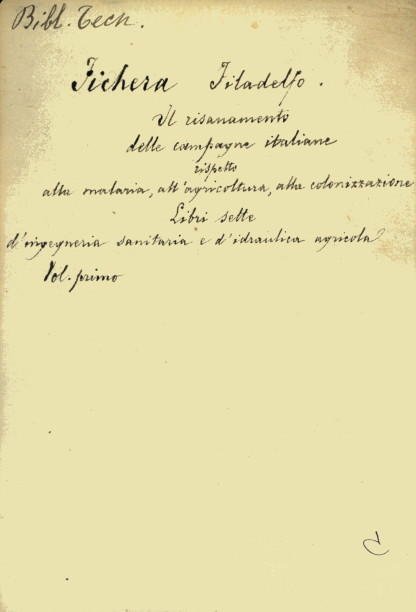 Bibl. Tech.
Fichera Filadelfo.
Il risanamento
delle campagne italiane
rispetto
alla malaria, all'agricoltura, alla colonizzazione
Libri sette
d'ingegneria sanitaria e d'idraulica agricola
Vol. primo